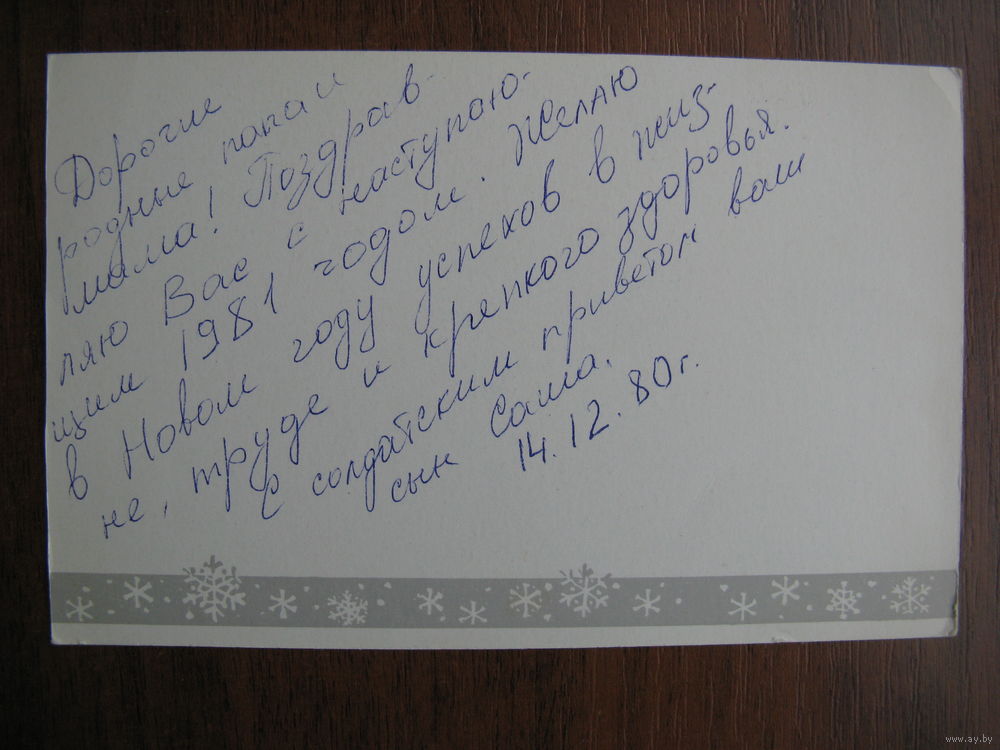 Дорогие
родные папа и
мама! Поздрав-
ляю Вас с наступаю-
щим 1981 годом. Желаю
в Новом году успехов в жиз-
не, труде и крепкого здоровья.
С солдатским приветом ваш
сын Саша.
14.12.80г.
www.ay.by